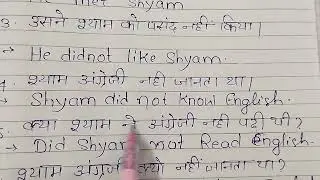 उसने श्याम को पसंद नहीं किया।
He didnot like Shyam.
श्याम अंग्रेजी नही जानता था।
Shyam did not Know English.
5. क्या श्याम ने अंग्रेजी नही पढ़ी थी?
Did Shyam not Read English.
श्याम अंग्रेजी क्यो नहीं जानता था?